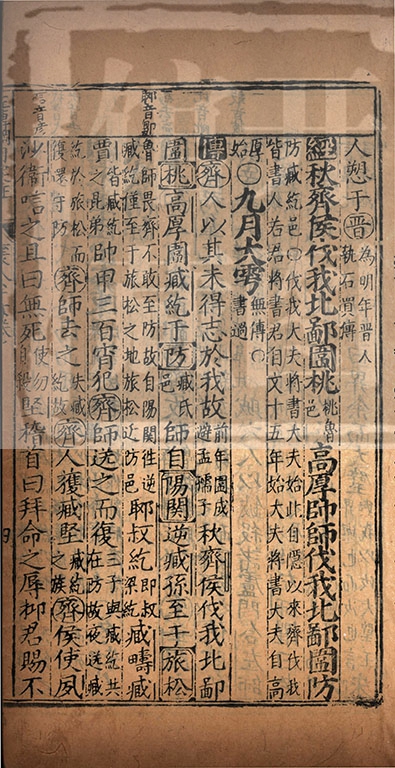 人愬于晉為明年晉人執石買傳
經秋齊侯伐我北鄙圍桃桃魯邑高厚帥師伐我北鄙圍防
防臧紇邑○伐我大夫將書大夫始此自隱以來齊伐我
皆書人若君將書君自文十五年始大夫將書大夫自高
厚始○九月大雩無傳○書過
傳齊人以其未得志於我故前年圍成避孟孺子秋齊侯伐我北鄙
圍桃高厚圍臧紇于防臧氏邑師自陽關逆臧孫至于旅松
郰音鄒
魯師畏齊不敢至防故自陽關往逆
臧紇僅至于旅松之地旅松近防邑郰叔紇即叔梁紇臧疇臧
賈皆臧紇之昆弟帥甲三百宵犯齊師送之而復三子與臧紇共在防故夜送臧
紇於旅松而復還守防齊師去之失臧紇故齊人獲臧堅臧紇之族齊侯使夙
唁音彥
沙衛唁之且曰無死使勿自殺堅稽首曰拜命之辱抑君賜不